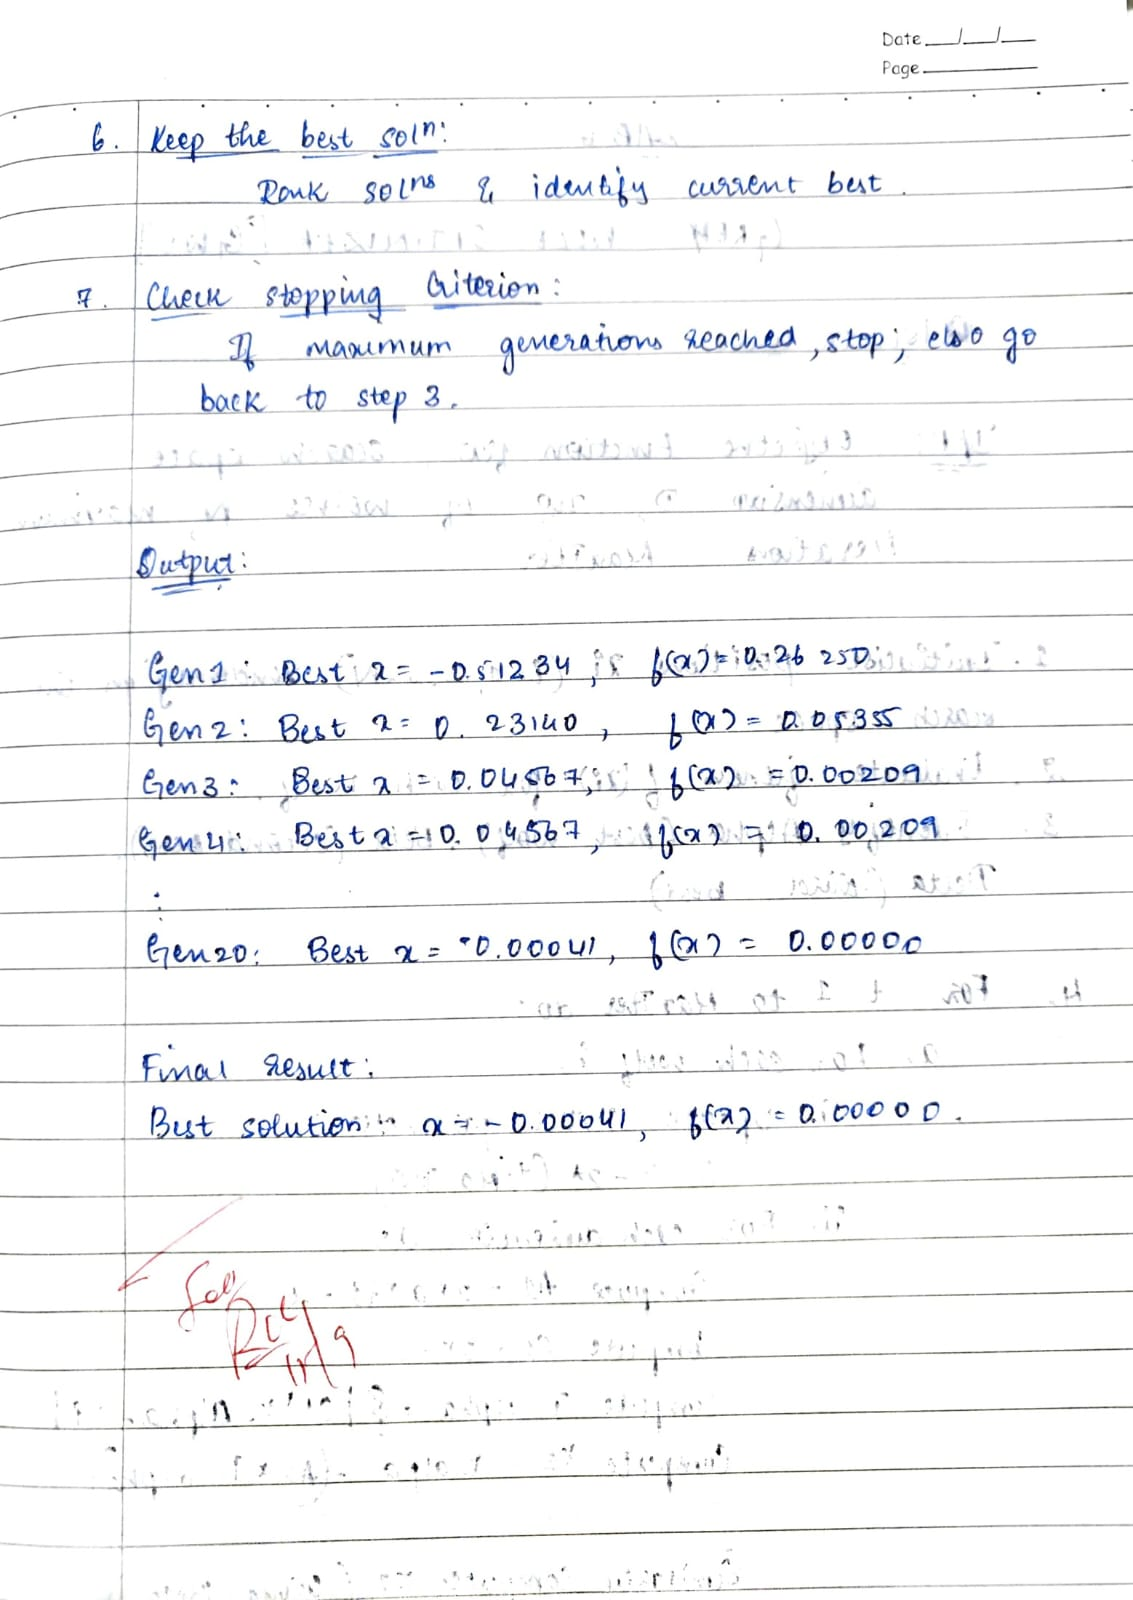 Date
Page
6. Keep the best soln:
Rank solns & identify current best.
7. Check stopping Criterion:
If maximum generations reached, stop; else go
back to step 3.
Output:
Gen 1: Best x = -0.51234, f(x) = 0.26250
Gen 2: Best x = 0.23140, f(x) = 0.05355
Gen 3: Best x = 0.04567, f(x) = 0.00209
Gen 4: Best x = 0.04567, f(x) = 0.00209
⋮
Gen 20: Best x = -0.00041, f(x) = 0.00000
Final result:
Best solution: x = -0.00041, f(x) = 0.00000.